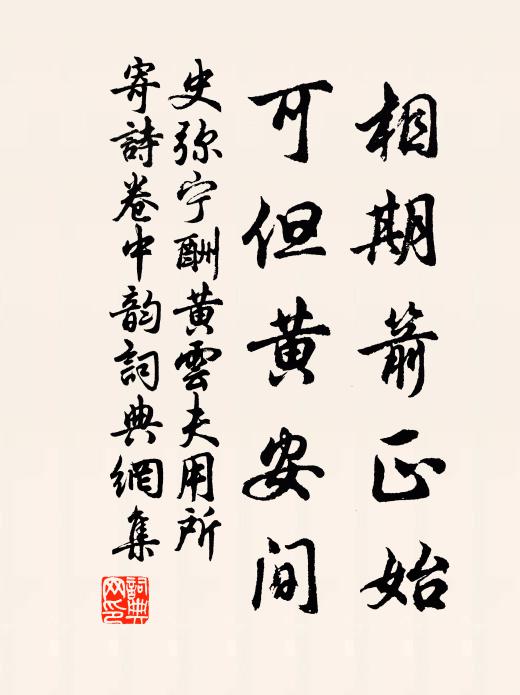 相期箭正始
可但黄安间
史弥宁酬黄雲夫用所
寄詩卷中韵詞典網集
詞典网印